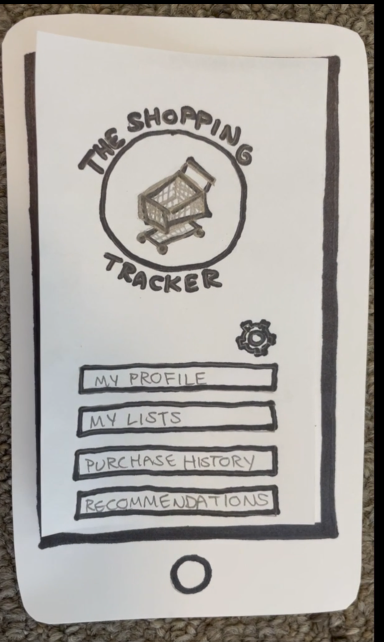 THE SHOPPING
TRACKER
MY PROFILE
MY LISTS
PURCHASE HISTORY
RECOMMENDATIONS